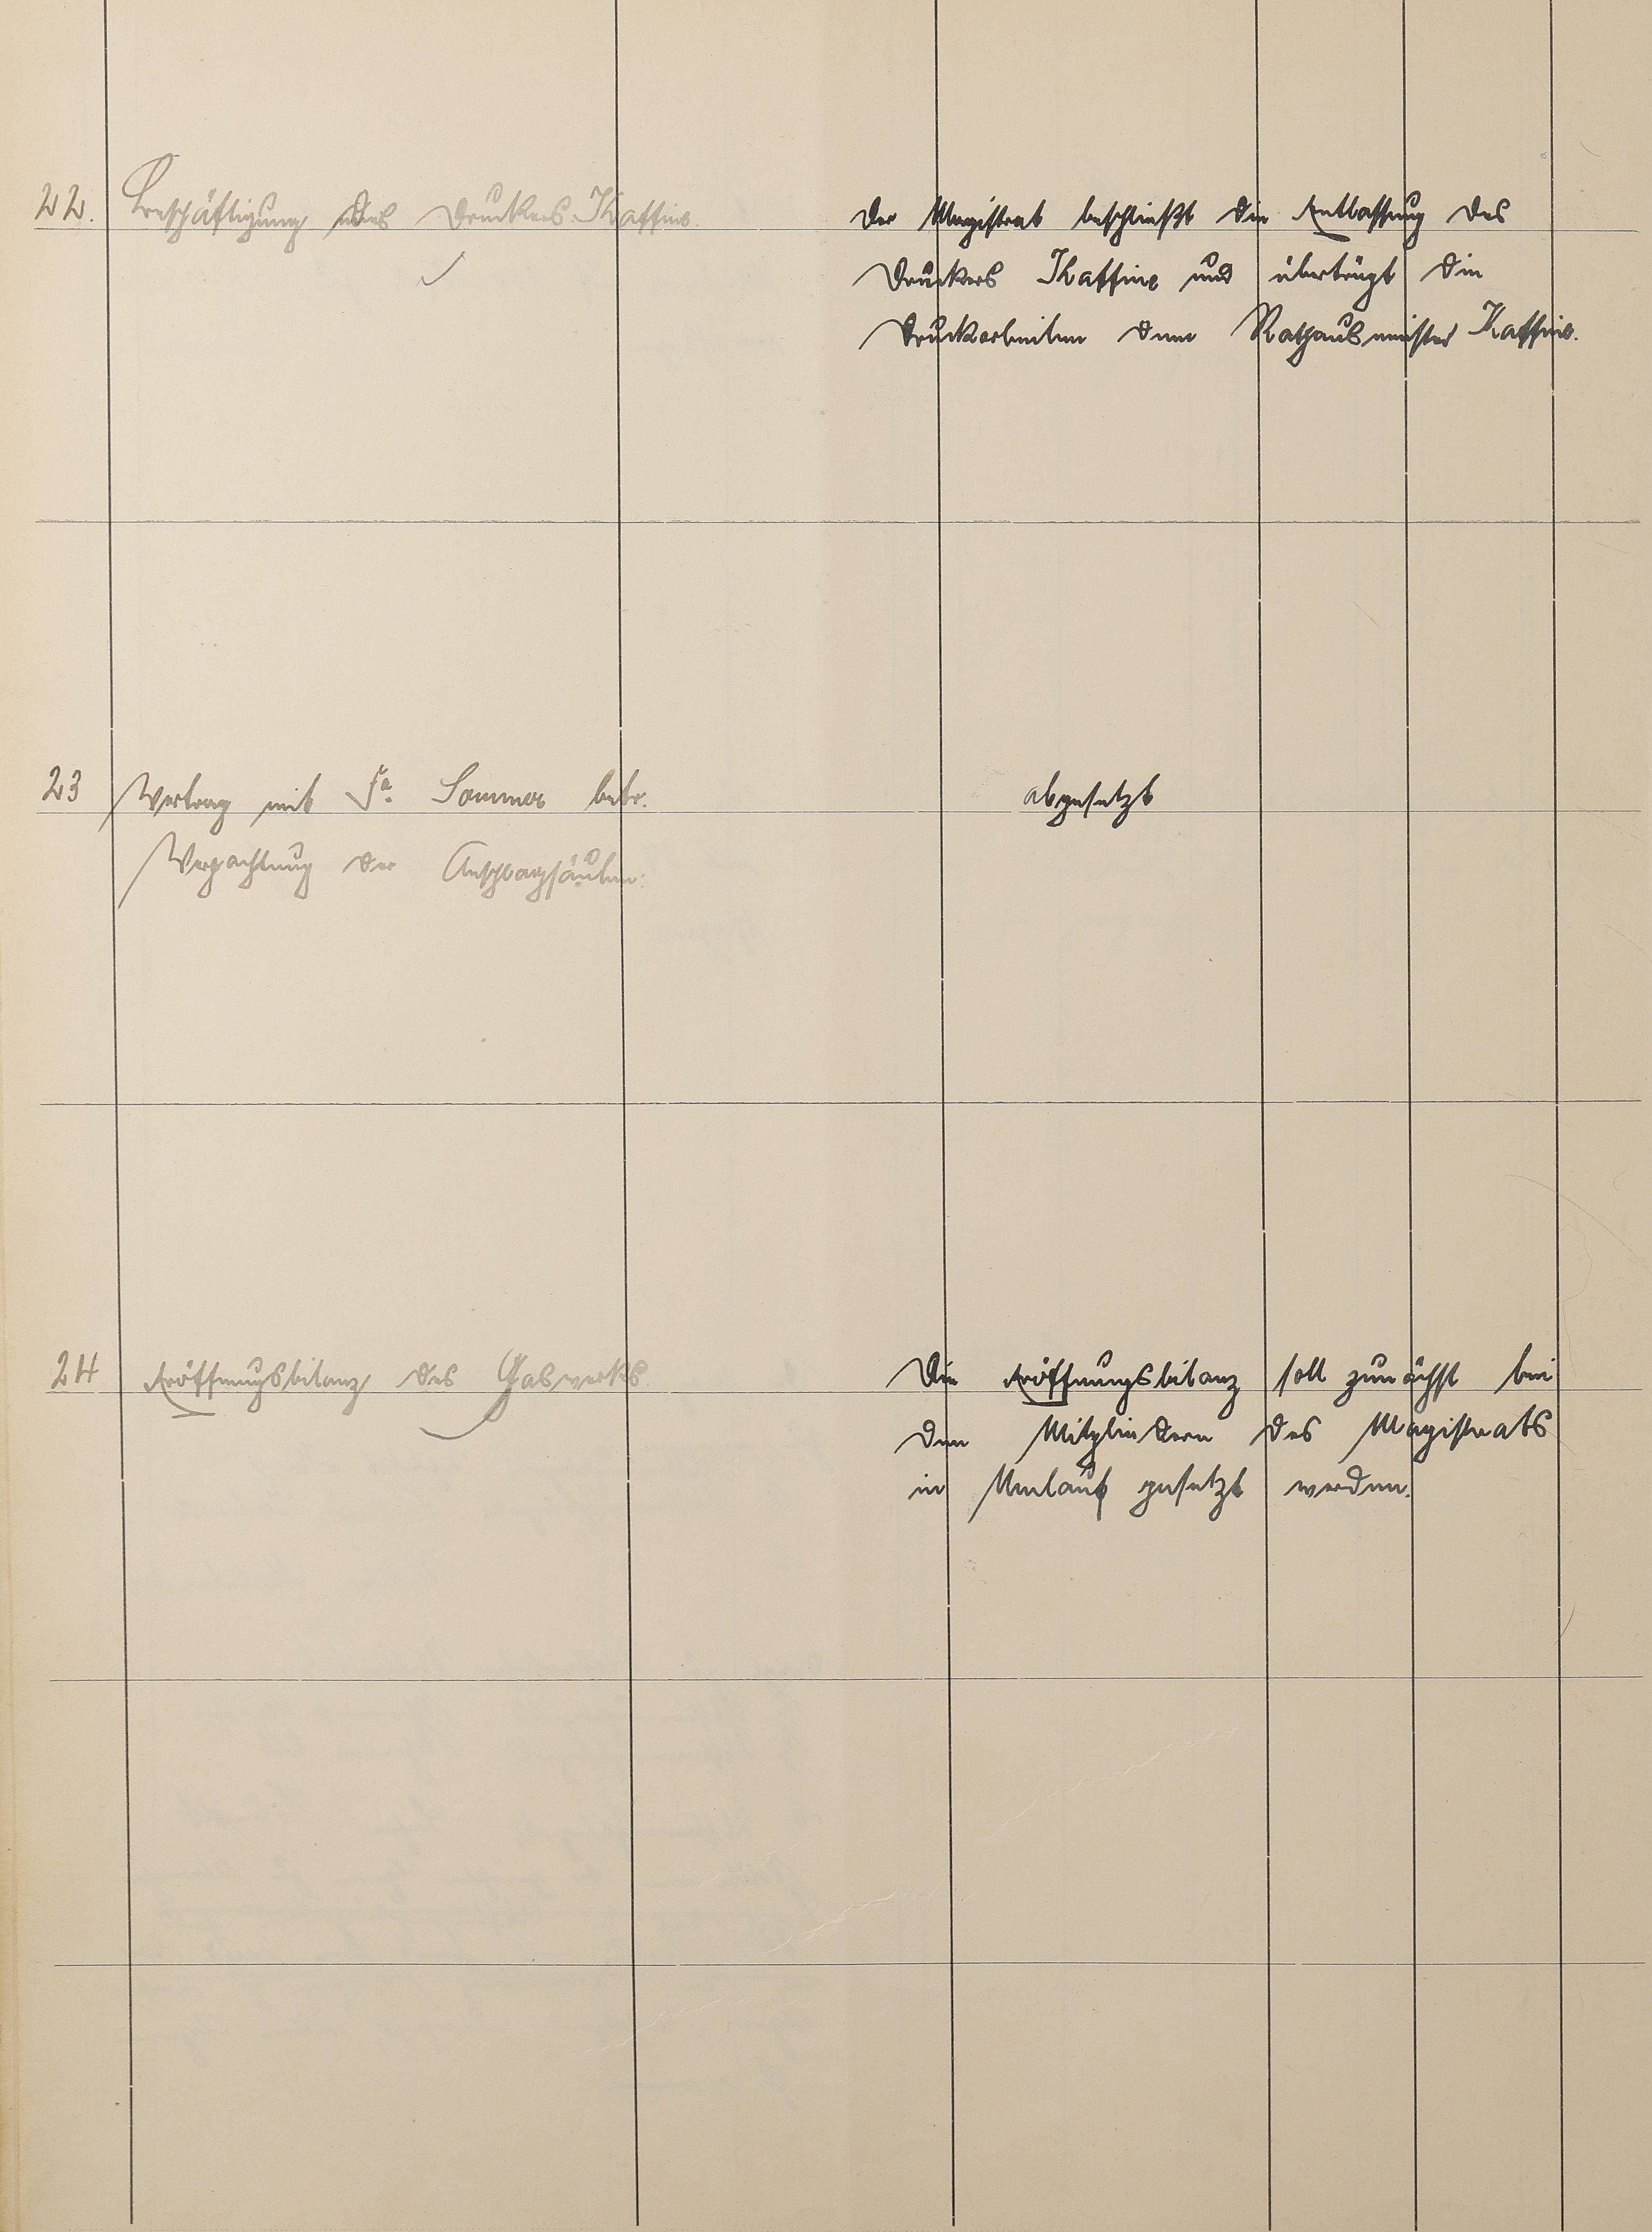 22. Beschäftigung des Druckers
Der Magistrat beschließt die Entlassung des
Druckers und überträgt die
Druckarbeiten dem Rathausmeister
23 Vertrag mit Fa. Sommer betr.
Verpachtung der Anschlagsäulen.
abgesetzt
24 Eröffnungsbilanz des Gaswerks.
Die Eröffnungsbilanz soll zunächst bei
den Mitgliedern des Magistrats
in Umlauf gesetzt werden.